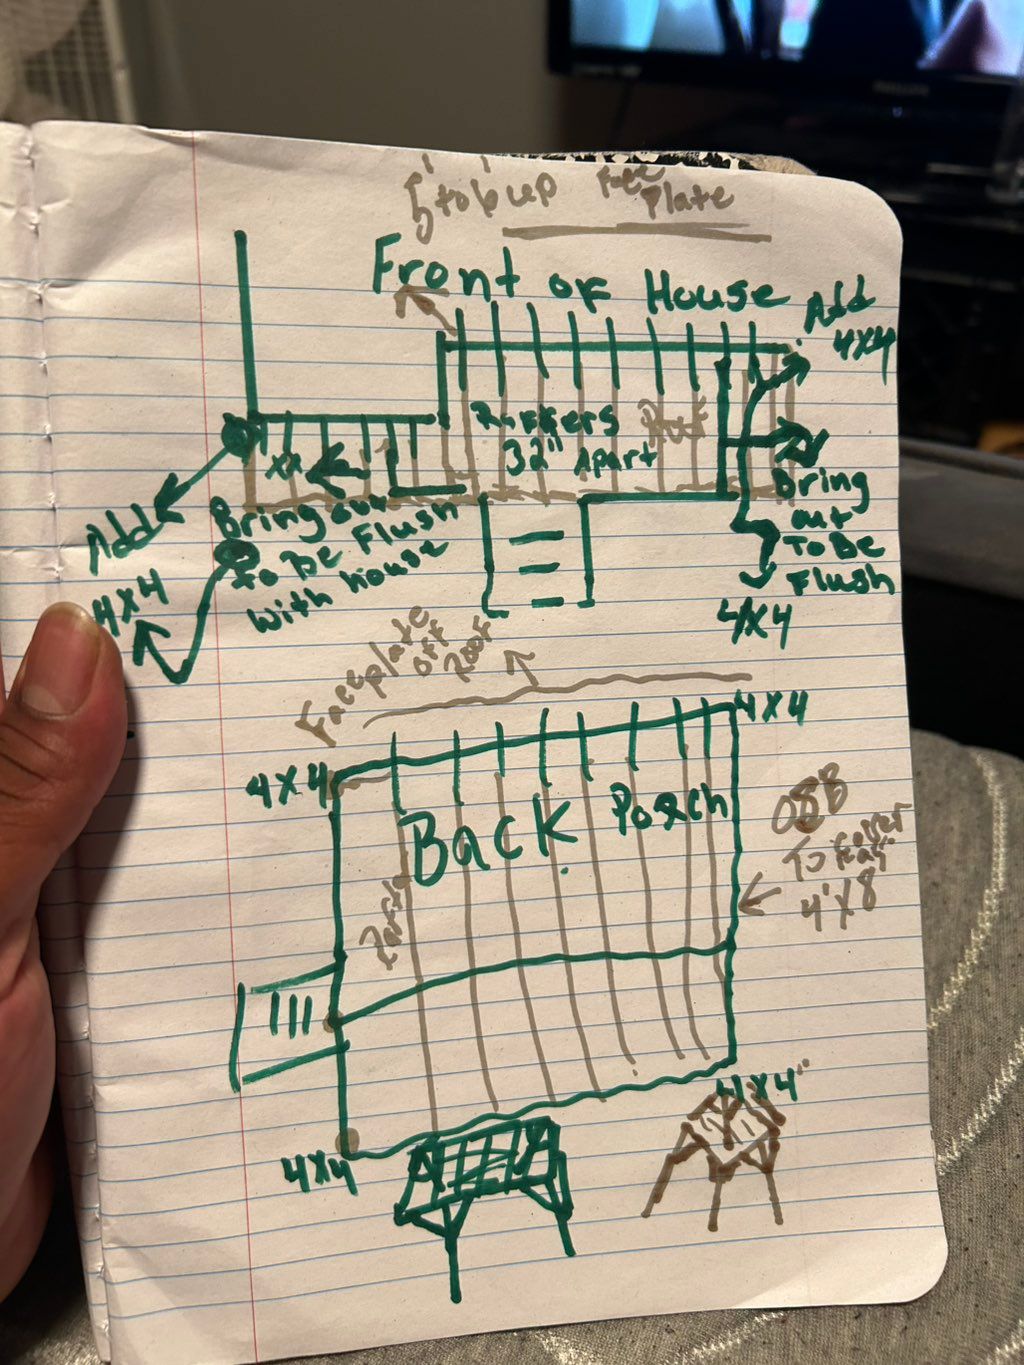 up Face
Plate
Front of House
Add
4x4
Rafters
32" Apart
xx
Bring out
to be Flush
with house
Add
4x4
Bring
out
To Be
Flush
4x4
Faceplate
off
Roof
4x4
4x4
Back Porch
OSB
To cover
4'x8'
4x4
4x4"
PHILIPS